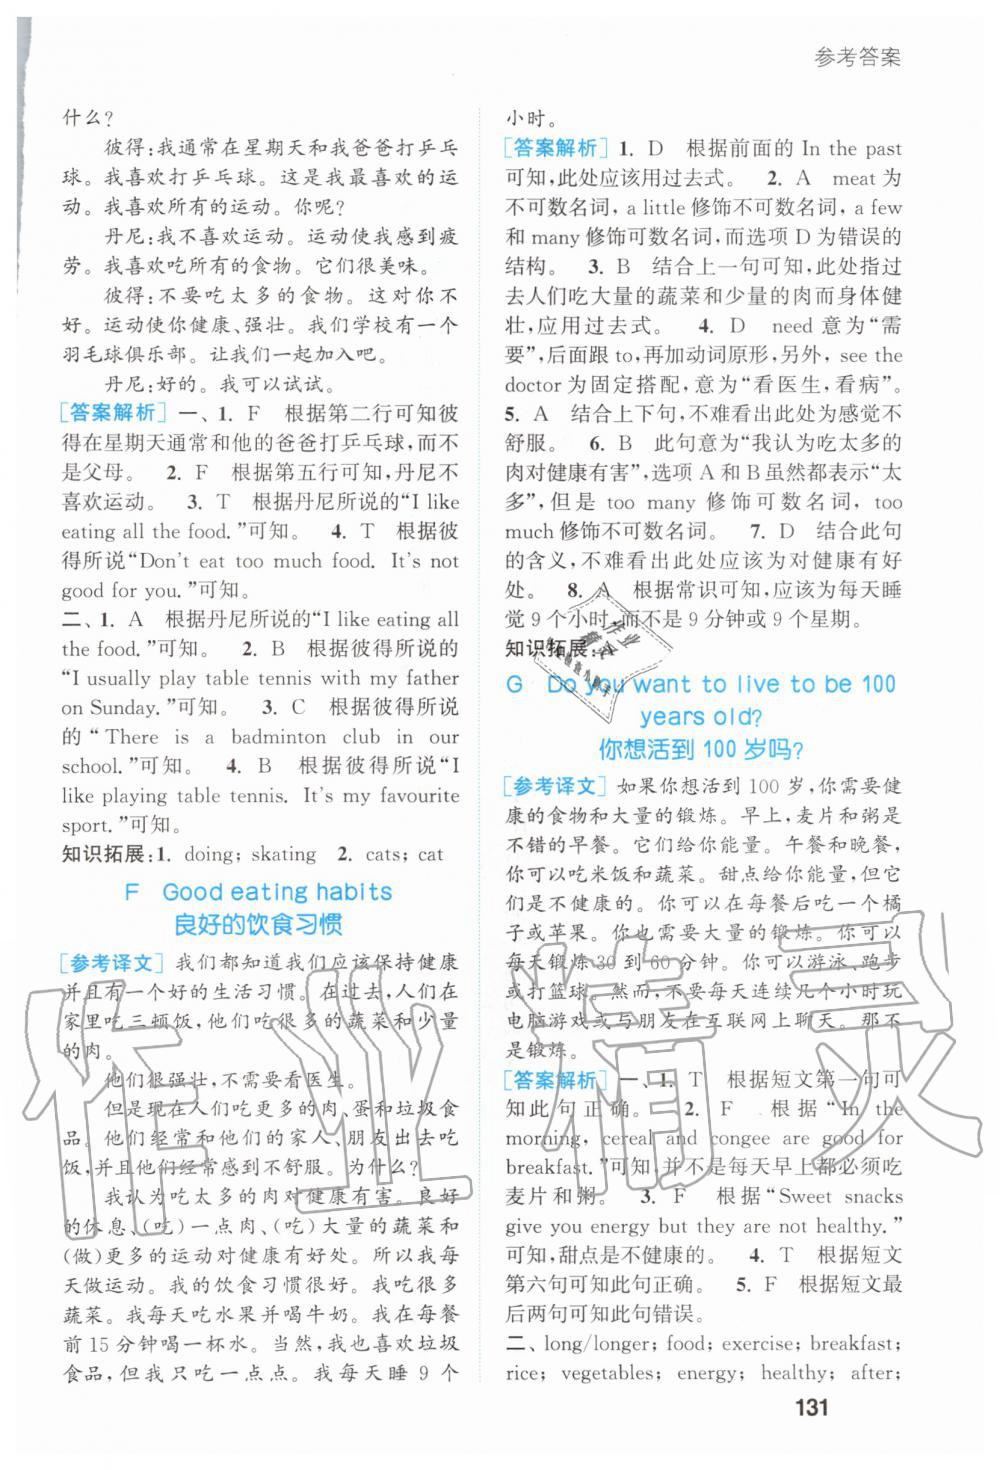 参考答案
什么？
彼得：我通常在星期天和我爸爸打乒乓
球。我喜欢打乒乓球。这是我最喜欢的运
动。我喜欢所有的运动。你呢？
丹尼：我不喜欢运动。运动使我感到疲
劳。我喜欢吃所有的食物。它们很美味。
彼得：不要吃太多的食物。这对你不
好。运动使你健康、强壮。我们学校有一个
羽毛球俱乐部。让我们一起加入吧。
丹尼：好的。我可以试试。
[答案解析] 一、1. F 根据第二行可知彼
得在星期天通常和他的爸爸打乒乓球，而不
是父母。 2. F 根据第五行可知，丹尼不
喜欢运动。 3. T 根据丹尼所说的“I like
eating all the food.”可知。 4. T 根据彼
得所说“Don't eat too much food. It's not
good for you.”可知。
二、1. A 根据丹尼所说的“I like eating all
the food.”可知。 2. B 根据彼得所说的
“I usually play table tennis with my father
on Sunday.”可知。 3. C 根据彼得所说
的“There is a badminton club in our
school.”可知。 4. B 根据彼得所说“I
like playing table tennis. It's my favourite
sport.”可知。
知识拓展：1. doing; skating 2. cats; cat
F Good eating habits
良好的饮食习惯
[参考译文] 我们都知道我们应该保持健康
并且有一个好的生活习惯。在过去，人们在
家里吃三顿饭，他们吃很多的蔬菜和少量
的肉。
他们很强壮，不需要看医生。
但是现在人们吃更多的肉、蛋和垃圾食
品。他们经常和他们的家人、朋友出去吃
饭，并且他们经常感到不舒服。为什么？
我认为吃太多的肉对健康有害。良好
的休息、(吃)一点肉、(吃)大量的蔬菜和
(做)更多的运动对健康有好处。所以我每
天做运动。我的饮食习惯很好。我每天吃
蔬菜。我每天吃水果并且喝牛奶。我在每餐
前15分钟喝一杯水。当然，我也喜欢垃圾
食品，但我只吃一点点。我每天睡 9 个
小时。
[答案解析] 1. D 根据前面的 In the past
可知，此处应该用过去式。 2. A meat 为
不可数名词，a little 修饰不可数名词，a few
和 many 修饰可数名词，而选项 D 为错误的
结构。 3. B 结合上一句可知，此处指过
去人们吃大量的蔬菜和少量的肉而身体健
壮，应用过去式。 4. D need 意为“需
要”，后面跟 to，再加动词原形，另外，see the
doctor 为固定搭配，意为“看医生，看病”。
5. A 结合上下句，不难看出此处为感觉不
舒服。 6. B 此句意为“我认为吃太多的
肉对健康有害”，选项 A 和 B 虽然都表示“太
多”，但是 too many 修饰可数名词，too
much 修饰不可数名词。 7. D 结合此句
的含义，不难看出此处应该为对健康有好
处。 8. A 根据常识可知，应该为每天睡
觉 9 个小时，而不是 9 分钟或 9 个星期。
知识拓展：A
G Do you want to live to be 100
years old?
你想活到 100 岁吗？
[参考译文] 如果你想活到 100 岁，你需要健
康的食物和大量的锻炼。早上，麦片和粥是
不错的早餐。它们很健康。午餐和晚餐，
你可以吃米饭和蔬菜。甜点给你能量，但它
们是不健康的。你可以在每餐后吃一个橘
子或苹果。你也需要大量的锻炼。你可以
每天锻炼30到60分钟。你可以游泳、跑步
或打篮球。然而，不要每天连续几个小时玩
电脑游戏或与朋友在互联网上聊天。那不
是锻炼。
[答案解析] 一、1. T 根据短文第一句可
知此句正确。 2. F 根据“In the
morning, cereal and congee are good for
breakfast.”可知，并不是每天早上都必须吃
麦片和粥。 3. F 根据“Sweet snacks
give you energy but they are not healthy.”
可知，甜点是不健康的。 4. T 根据短文
第六句可知此句正确。 5. F 根据短文最
后两句可知此句错误。
二、long/longer; food; exercise; breakfast;
rice; vegetables; energy; healthy; after;
131
作业精灵